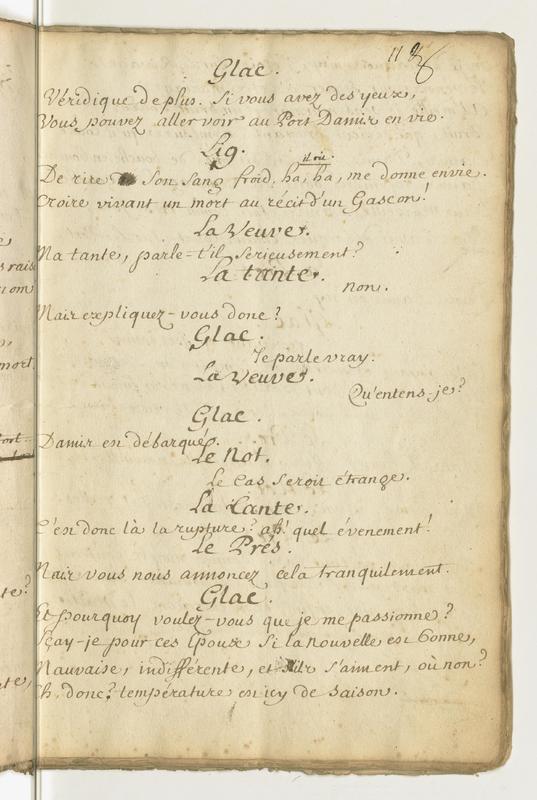 118
Glac.
Véridique de plus. Si vous avez des yeux,
Vous pouvez aller voir au Port Damis en vie.
Lig.
il rit.
De rire Son Sang froid, ha, ha, me donne envie.
Croire vivant un mort au récit d'un Gascon!
La Veuve.
Ma tante, parle-t'il Serieusement?
La tante.
non.
Mais expliquez-vous donc?
Glac.
Je parle vray.
La Veuve.
Qu'entens-je?
Glac.
Damis est débarqué.
Le Not.
Le Cas Seroit étrange.
La Tante.
C'est donc là la rupture? ah! quel évenement!
Le Prés.
Mais vous nous annoncez cela tranquilement.
Glac.
Et pourquoy voulez-vous que je me passionne?
Sçay-je pour ces Epoux Si la nouvelle est bonne,
Mauvaise, indifférente, et s'ils s'aiment, où non?
Eh, donc? température est icy de Saison.